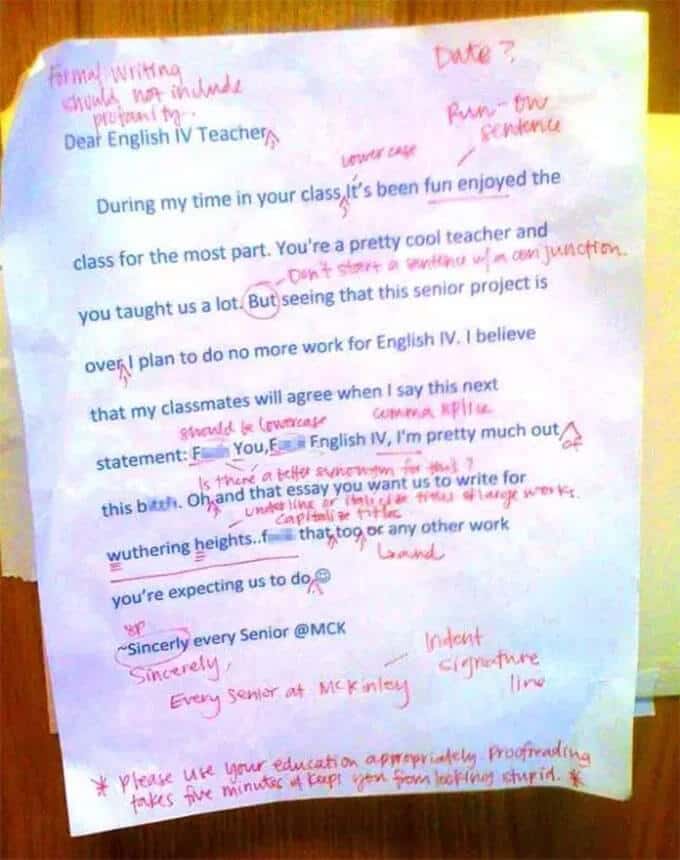 Formal writing
should not include
profanity.
Date?
Dear English IV Teacher
Run-on
sentence
lower case
During my time in your class,It's been fun enjoyed the
class for the most part. You're a pretty cool teacher and
- Don't start a sentence w/ a conjunction.
you taught us a lot. But seeing that this senior project is
over, I plan to do no more work for English IV. I believe
that my classmates will agree when I say this next
should be lowercase
comma splice
statement: F You,F English IV, I'm pretty much out
of
Is there a better synonym for this?
this b. Oh, and that essay you want us to write for
underline or italicize titles of large works.
Capitalize titles
wuthering heights..f that, too, or any other work
and
you're expecting us to do, ☺
sp
~Sincerly every Senior @MCK
Sincerely,
Every senior at McKinley
Indent
signature
line
* Please use your education appropriately. Proofreading
takes five minutes & keeps you from looking stupid. *